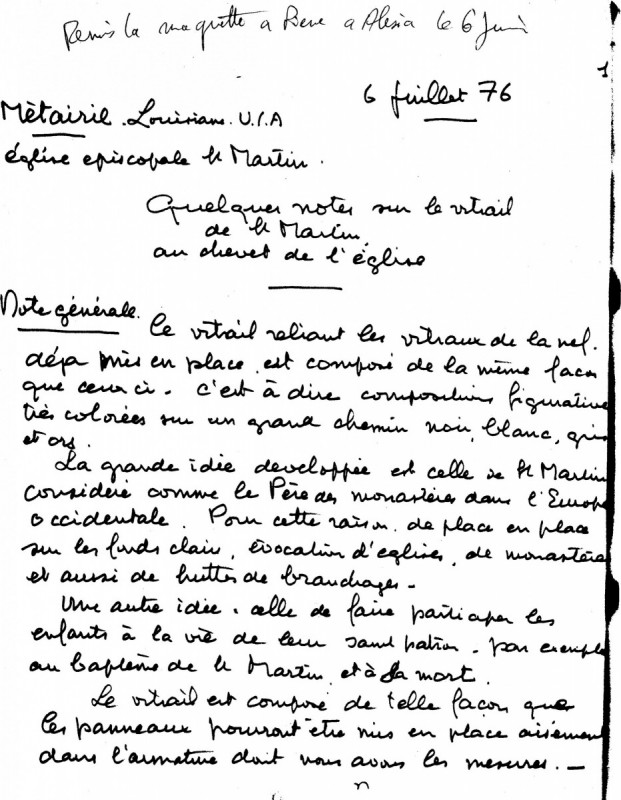 Remis la maquette a a Alesia le 6 Juin
1
6 Juillet 76
Mètairie. Louisiane. U.S.A
église episcopale St Martin.
Quelques notes sur le vitrail
de St Martin.
au chevet de l'église
Note générale. Ce vitrail reliant les vitraux de la nef.
déja mis en place, est composé de la même facon
que ceux ci. c'est à dire compositions figurative
très colorées sur un grand chemin noir, blanc, gris
et ors.
La grande idée developpée est celle de St Martin
considéré comme le Père des monastères dans l'Europe
Occidentale. Pour cette raison. de place en place
sur les fonds clairs, évocation d'eglises, de monastère
et aussi de huttes de branchages-
Une autre idée. celle de faire participer les
enfants à la vie de leur saint patron. par exemple
au baptême de St Martin, et à sa mort.
Le vitrail est composé de telle façon que
les panneaux pourront être mis en place aisément
dans l'armature dont nous avons les mesures. —